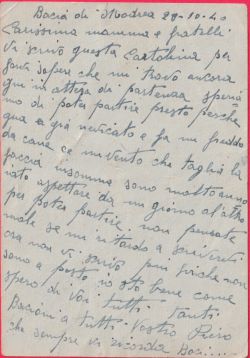 Bacia di Modrea 29-10-40
Carissima mamma e fratelli
Vi scrivo questa Cartolina per
farvi sapere che mi trovo ancora
qui in attesa di partenza speria
mo di poter partire presto perche
qua a già nevicato e fa un freddo
da cane ce un vento che taglia la
faccia insomma sono molto anno
iato aspettare da un giorno al'altro
per poter partire non pensate
male se mi ritardo a scriverci
ora non vi scrivo più finche non
sono a posto io sto bene come
spero di Voi tutti Tanti
Bacioni a tutti Vostro Piero
che sempre vi ricorda Baci....